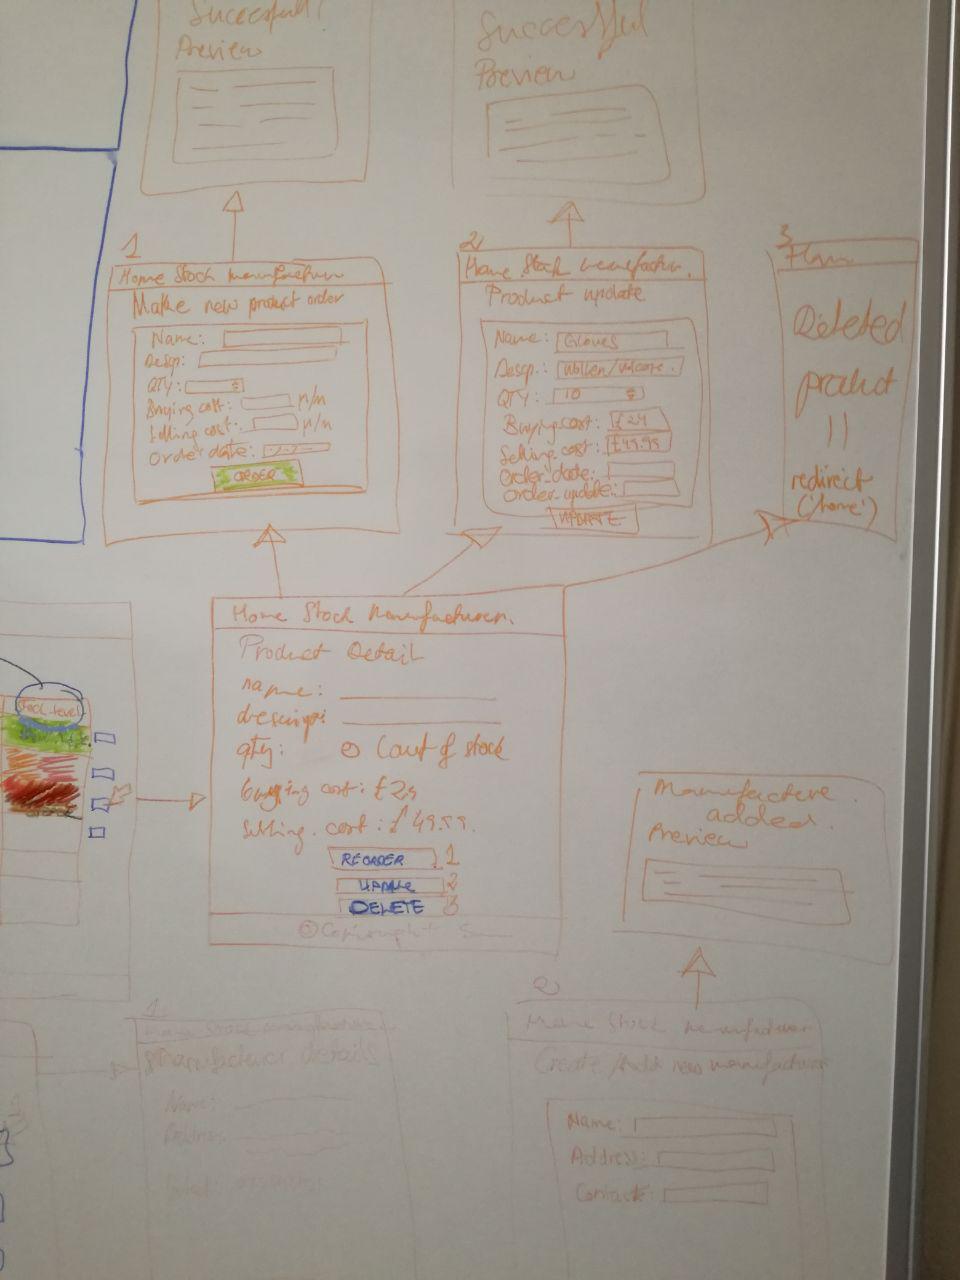 Successful!
Preview
Successful
Preview
1
Home Stock manufacturer
Make new product order
Name:
Descp:
QTY:
Buying cost: n/n
Selling cost: n/n
Order date:
ORDER
2
Home Stock manufactur.
Product update
Name: Gloves
Descp.:
QTY: 10
Buying cost: £24
Selling cost: £49.99
Order date:
Order update:
UPDATE
3
Deleted
product
redirect
('home')
Home Stock Manufacturer.
Product Detail
name:
qty: 0 (out of stock
buying cost: £24
Selling cost: £49.99.
REORDER 1
UPDATE 2
DELETE 3
© Copyright
Stock level
Manufacture
added.
Preview
1
Home Stock manufacturer
Manufacturer details
Name:
Address:
2
Home Stock manufacturer
Create/Add new manufacturer
Name:
Address:
Contact: